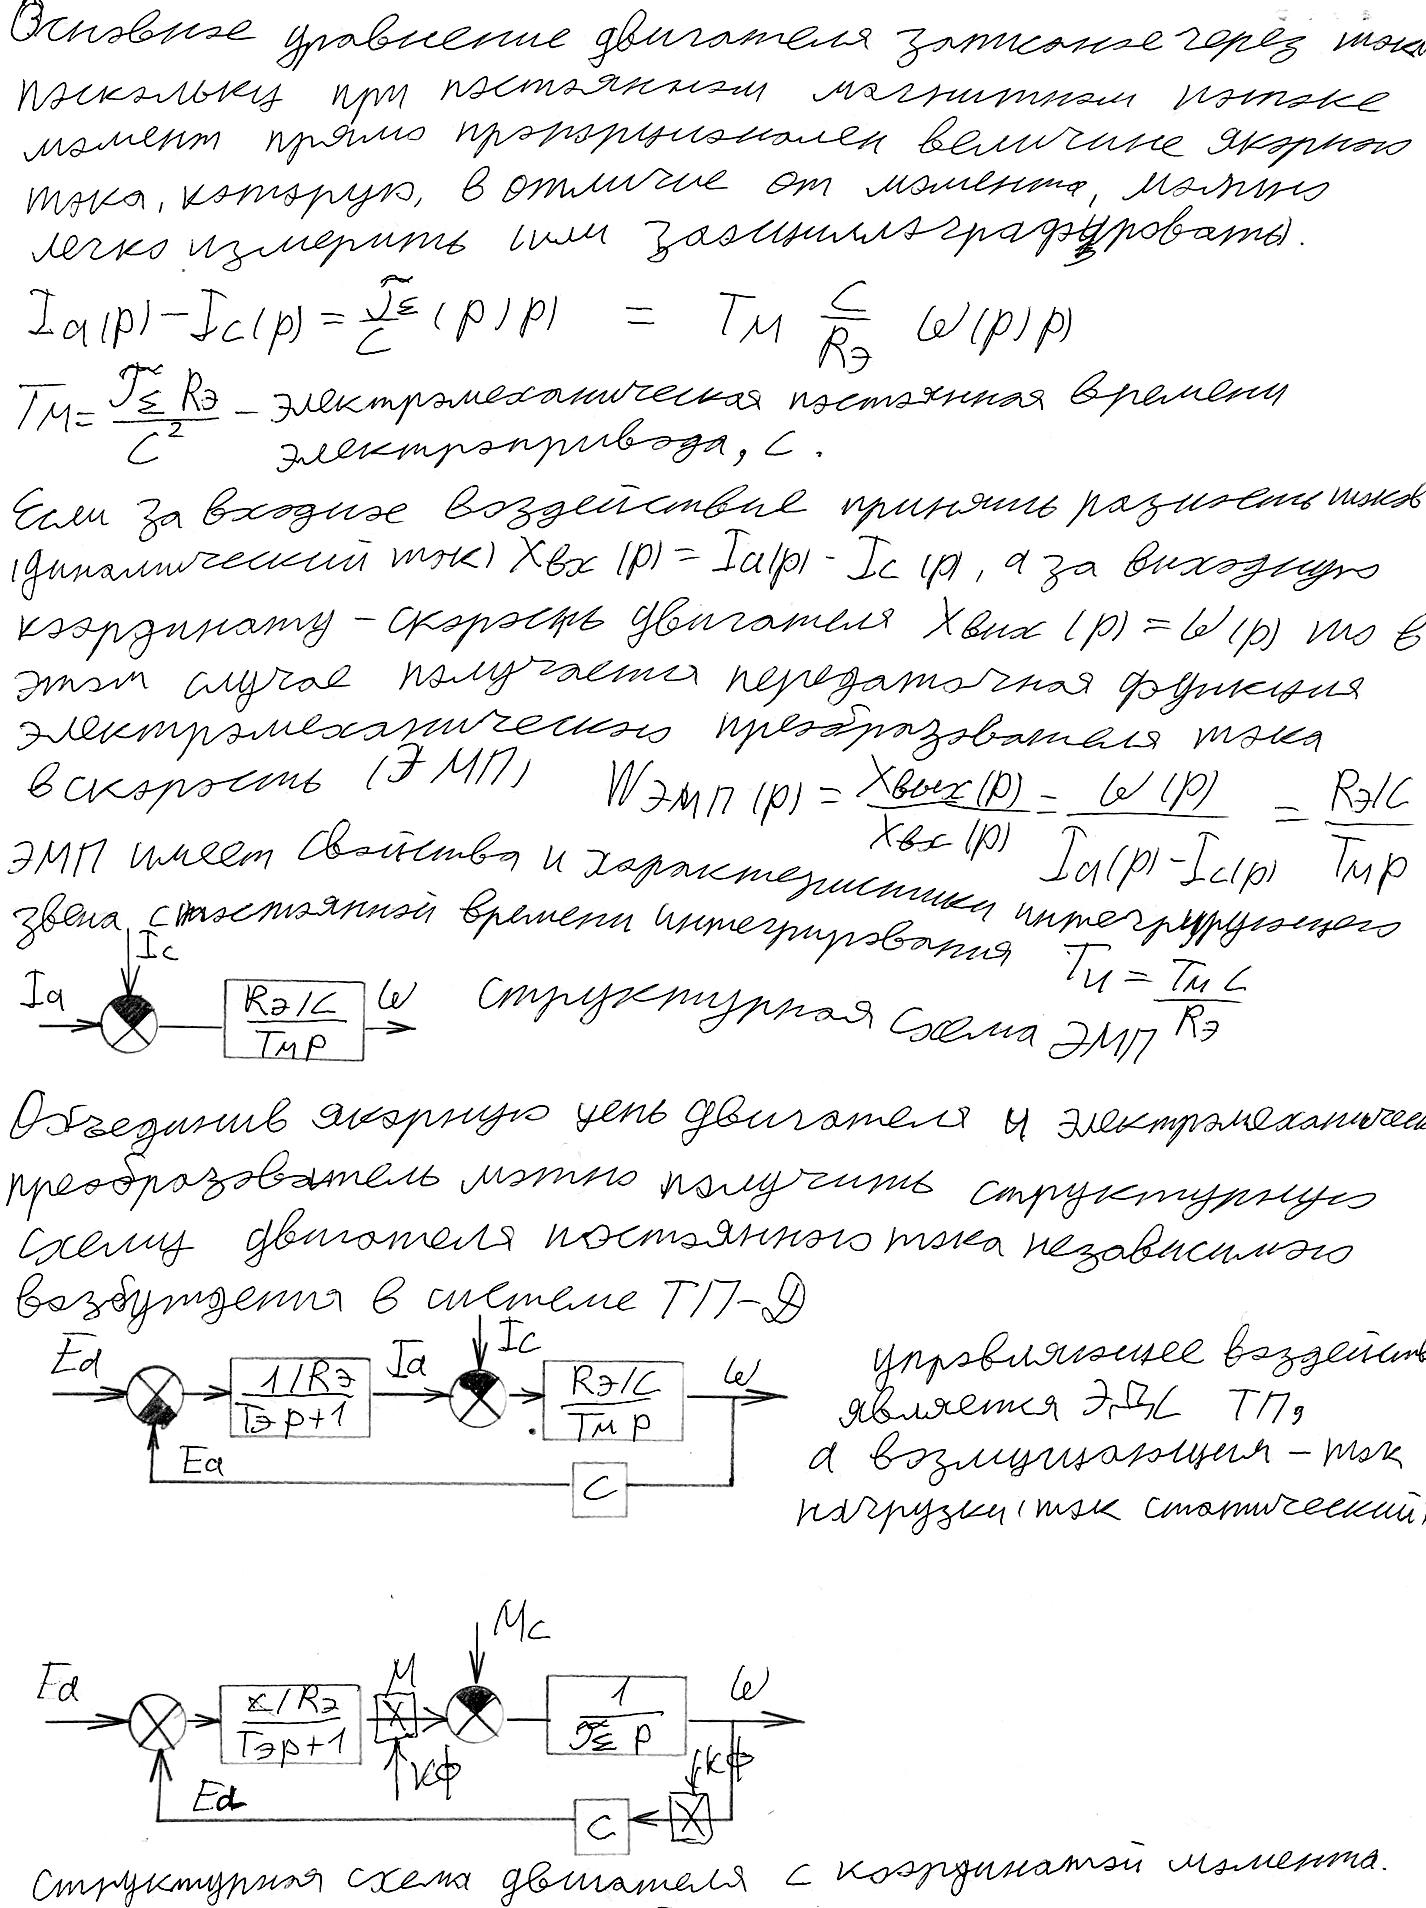 Основное уравнение двигателя записаное через токи
поскольку при постоянном магнитном потоке
момент прямо пропорционален величине якорного
тока, которую, в отличие от момента, можно
легко измерить (или заосциллографировать).
Iа(p) - Iс(p) = J̃Σ/C (p)p) = Tм C/Rэ ω(p)p)
Tм = J̃Σ Rэ/C² - электромеханическая постоянная времени
электропривода, с.
Если за входное воздействие принять разность токов
(динамический ток) Xвх(p) = Iа(p) - Iс(p), а за выходную
координату - скорость двигателя Xвих(p) = ω(p) то в
этом случае получается передаточная функция
электромеханического преобразователя тока
в скорость (ЭМП) WЭМП(p) = Xвых(p)/Xвх(p) = ω(p)/Iа(p)-Iс(p) = Rэ/C/Tмp
ЭМП имеет свойства и характеристики интегрирующего
звена с постоянной времени интегрирования Tи = Tм C/Rэ
Iс
Iа Rэ/C/Tмp ω структурная схема ЭМП
Объединив якорную цепь двигателя и электромеханическ
преобразователь можно получить структурную
схему двигателя постоянного тока независимого
возбуждения в системе ТП-Д
Ed 1/Rэ/Tэp+1 Iа Iс Rэ/C/Tмp ω
Eа C
управляющее воздейств
является ЭДС ТП,
а возмущающия - ток
нагрузки (ток статический)
Mс
Ed x/Rэ/Tэp+1 M X 1/J̃Σ p ω
КФ КФ
Ed C X
Структурная схема двигателя с координатой момента.